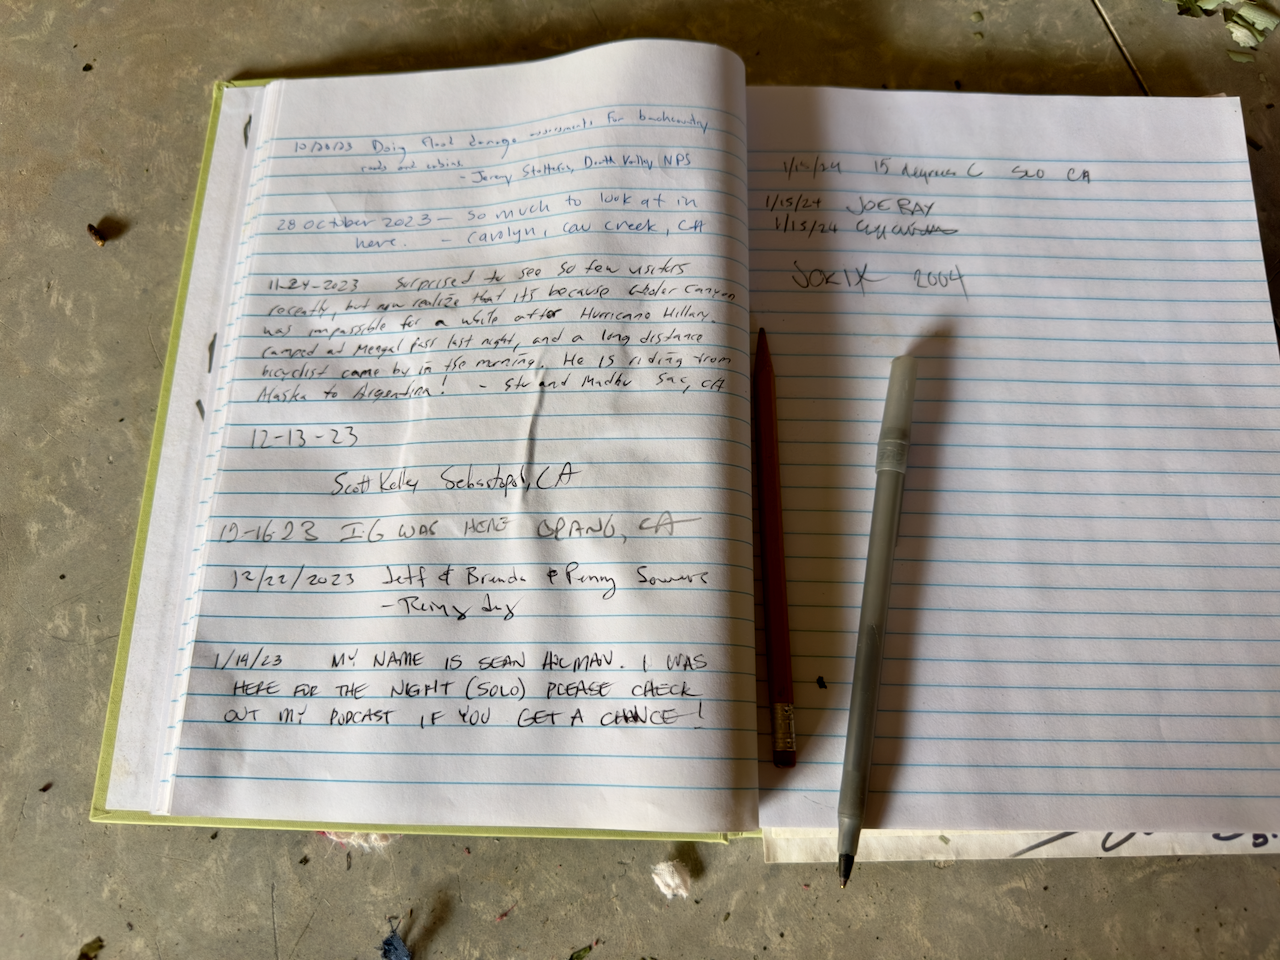 10/20/23 Doing flood damage assessments for backcountry
roads and cabins
- Jeremy Death Valley NPS
28 October 2023 - So much to look at in
here. - Carolyn, Cow Creek, CA
11-24-2023 Surprised to see so few visitors
recently, but now realize that its because Goler Canyon
was impassible for a while after Hurricane Hillary.
Camped at Mengel Pass last night, and a long distance
bicyclist came by in the morning. He is riding from
Alaska to Argentina! - Stu and Madhu Sac, CA
12-13-23
Scott Kelley Sebastopol, CA
12-16-23 I.G WAS HERE CA
12/22/2023 Jeff & Brenda & Penny
- Rainy day
1/14/23 MY NAME IS SEAN HOLMAN. I WAS
HERE FOR THE NIGHT (SOLO) PLEASE CHECK
OUT MY PODCAST IF YOU GET A CHANCE!
1/15/24 15 degrees C SLO CA
1/15/24 JOE RAY
1/15/24
2004